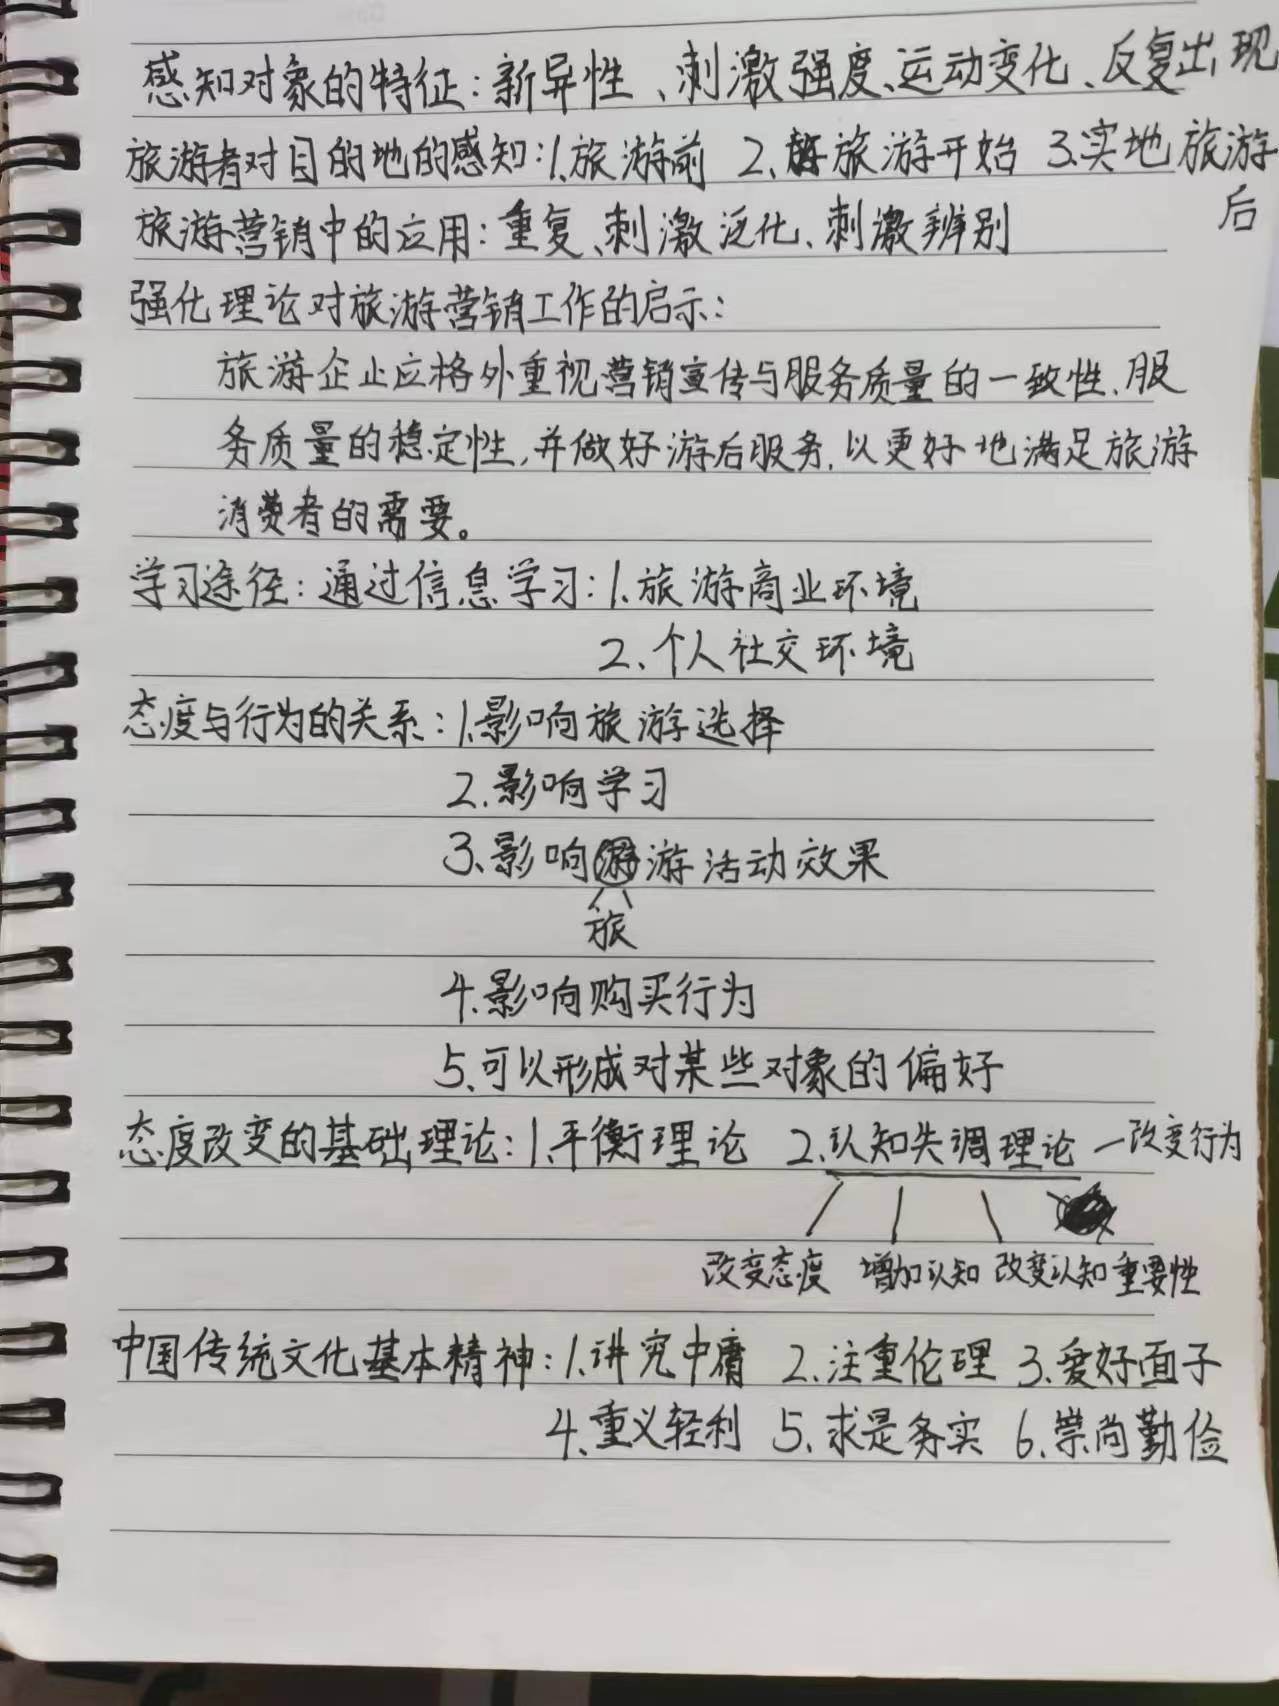 感知对象的特征：新异性、刺激强度、运动变化、反复出现
旅游者对目的地的感知：1.旅游前 2.旅游开始 3.实地旅游
后
旅游营销中的应用：重复、刺激泛化、刺激辨别
强化理论对旅游营销工作的启示：
旅游企止应格外重视营销宣传与服务质量的一致性、服
务质量的稳定性，并做好游后服务，以更好地满足旅游
消费者的需要。
学习途径：通过信息学习：1.旅游商业环境
2.个人社交环境
态度与行为的关系：1.影响旅游选择
2.影响学习
3.影响游活动效果
旅
4.影响购买行为
5.可以形成对某些对象的偏好
态度改变的基础理论：1.平衡理论 2.认知失调理论—改变行为
改变态度 增加认知 改变认知重要性
中国传统文化基本精神：1.讲究中庸 2.注重伦理 3.爱好面子
4.重义轻利 5.求是务实 6.崇尚勤俭